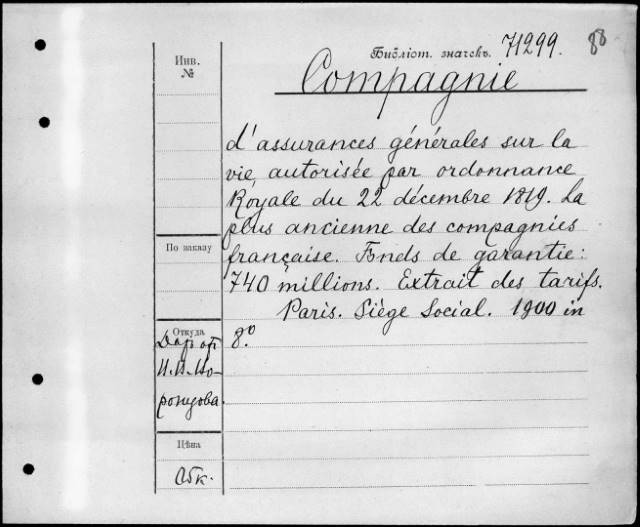 Инв.
№
Библіот. значекъ. 71299. 88
Compagnie
d'assurances générales sur la
vie, autorisée par ordonnance
Royale du 22 décembre 1819. La
plus ancienne des compagnies
française. Fonds de garantie:
740 millions. Extrait des tarifs.
Paris. Siège Social. 1900 in
8º.
По заказу
Откуда
Дар от
Цѣна